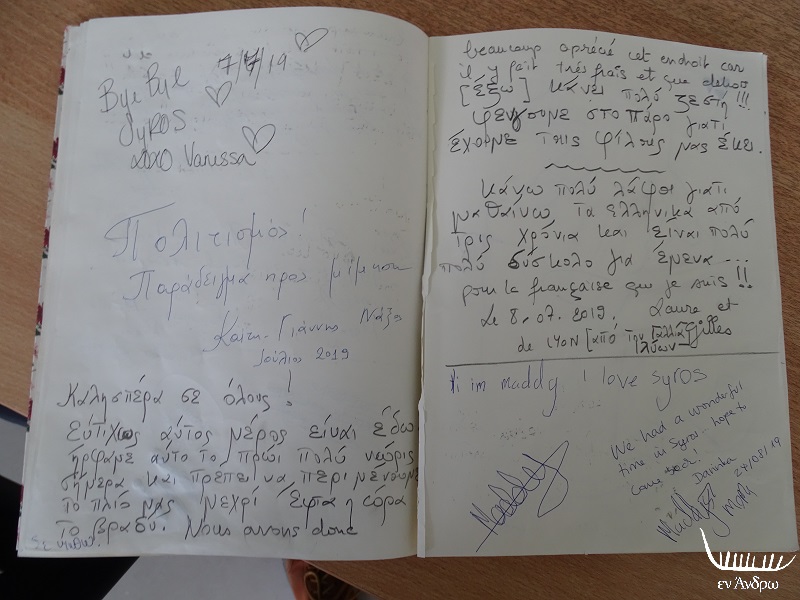 7/7/19
Bye Bye
SYROS
XOXO Vanessa
Πολιτισμός!
Παράδειγμα προς μίμηση
Καίτη - Γιάννης Νάξο
Ιούλιο 2019
Καλησπέρα σε όλους!
Εύτιχως αύτος μέρος είναι έδω
ήρφαμε αύτο το πρώι πολύ νώρις
σήμερα και πρέπει να περιμένουμε
το πλίο μας μεχρί έφτα η ώρα
το βραδυ. Nous avons donc
beaucoup aprécié cet endroit car
il y fait très frais et que dehors
[έξω] κάνει πολύ ζεστη!!!
φεύγουμε στο Πάρο γιατι
έχουμε τους φίλους μας έκει.
κάνω πολύ λάφοι γιατι
μαθαίνω τα ελληνικά από
τρις χρόνια και είναι πολύ
πολύ δύσκολο για έμενα ...
pour la française que je suis!!
Le 8.07.2019. Laure et
Gilles
de LYON [από την
Λυών]
Hi im maddy. I love syros
Maddy
We had a wonderful
time in Syros - hope to
come back!
Darinka
27/08/19
Maddy
εν Άνδρω